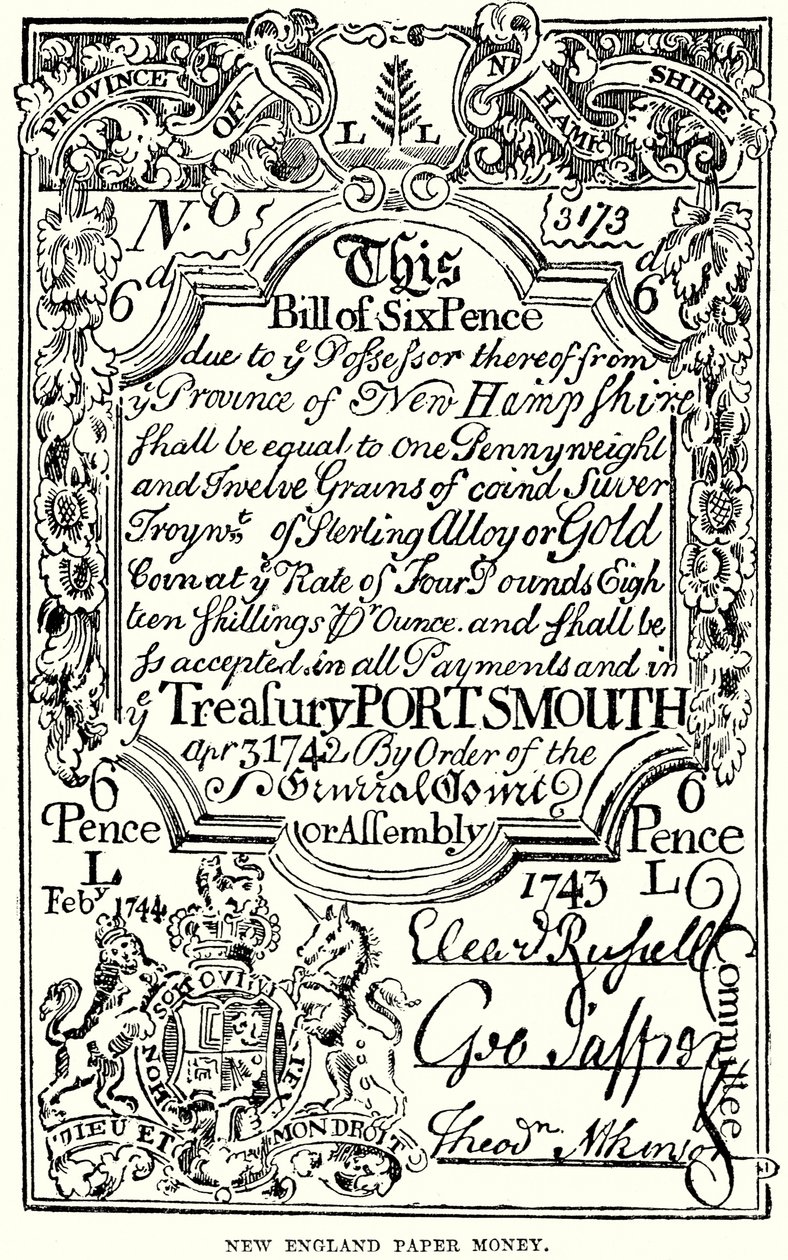 PROVINCE OF N HAMP SHIRE
L L
N.o 3173
6d 6d
This
Bill of Six Pence
due to yͤ Poſseſsor thereof from
yͤ Province of New Hampſhire
ſhall be equal to one Pennyweight
and Twelve Grains of coind Silver
Troywt. of Sterling Alloy or Gold
Coin at yͤ Rate of Four Pounds Eigh
teen ſhillings Pr Ounce. and ſhall be
ſs accepted in all Payments and in
yͤ Treaſury PORTSMOUTH
Apr 3 1742 By Order of the
General Court
or Aſſembly
6 6
Pence Pence
L L
Feby 1744 1743
Eleazr Ruſsell
Geo Jaffrey
Theodr Atkinson
Committee
HONI SOIT QUI
DIEU ET MON DROIT
NEW ENGLAND PAPER MONEY.